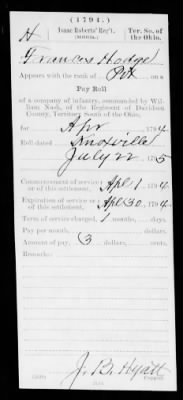 (1794.)
H Isaac Roberts' Reg't. Ter. So. of
(MILITIA.) the Ohio.
Francis Hodge
Appears with the rank of Pvt on a
Pay Roll
of a company of infantry, commanded by Wil-
liam Nash, of the Regiment of Davidson
County, Territory South of the Ohio,
for Apr 1794
Roll dated Knoxville
July 22 1795
Commencement of service
or of this settlement, Apl 1, 1794.
Expiration of service or
of this settlement, Apl 30, 1794.
Term of service charged, 1 months, days.
Pay per month, dollars.
Amount of pay, 3 dollars, cents.
Remarks:
J. B. Hyatt
Copyist.